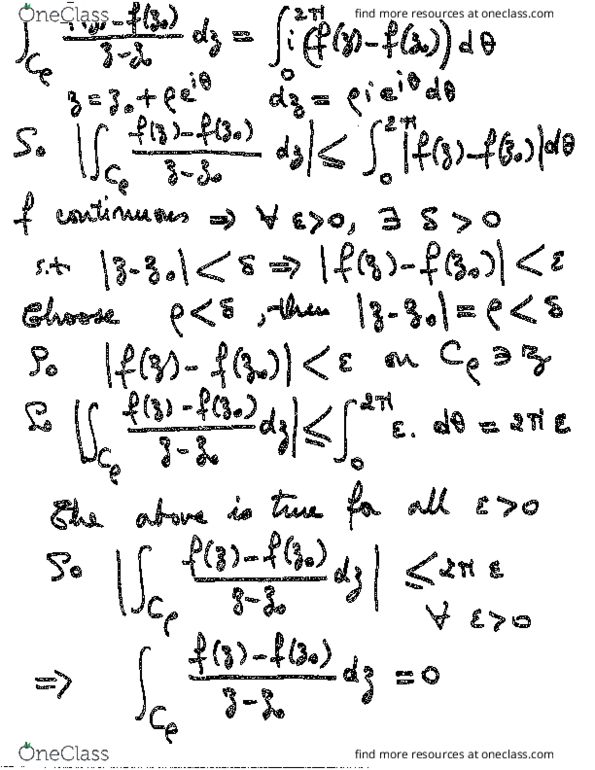 OneClass find more resources at oneclass.com
∫_{C_ρ} (f(z) - f(z₀))/(z - z₀) dz = ∫₀^{2π} i (f(z) - f(z₀)) dθ
z = z₀ + ρe^{iθ} dz = ρie^{iθ}dθ
So |∫_{C_ρ} (f(z) - f(z₀))/(z - z₀) dz| ≤ ∫₀^{2π} |f(z) - f(z₀)|dθ
f continuous ⇒ ∀ ε>0, ∃ δ > 0
s.t. |z - z₀| < δ ⇒ |f(z) - f(z₀)| < ε
Choose ρ < δ, then |z - z₀| = ρ < δ
So |f(z) - f(z₀)| < ε on C_ρ ∋ z
So |∫_{C_ρ} (f(z) - f(z₀))/(z - z₀) dz| ≤ ∫₀^{2π} ε. dθ = 2π ε
The above is true for all ε > 0
So |∫_{C_ρ} (f(z) - f(z₀))/(z - z₀) dz| ≤ 2π ε
∀ ε > 0
⇒ ∫_{C_ρ} (f(z) - f(z₀))/(z - z₀) dz = 0
OneClass find more resources at oneclass.com